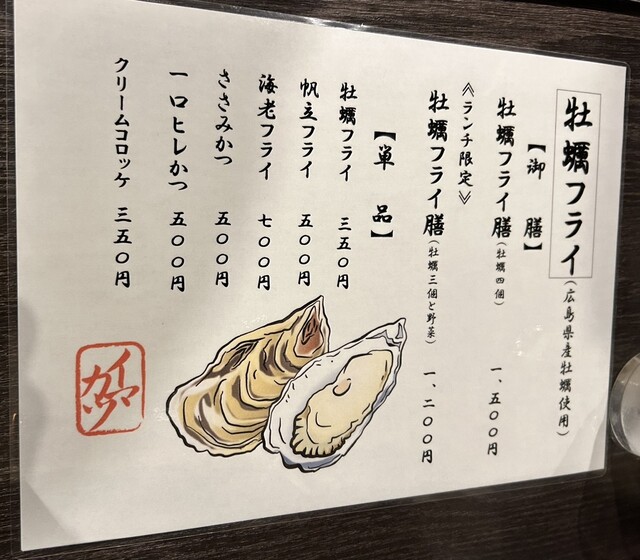 牡蠣フライ(広島県産牡蠣使用)
【御膳】
牡蠣フライ膳(牡蠣四個) 一、五〇〇円
《ランチ限定》
牡蠣フライ膳(牡蠣三個と野菜) 一、二〇〇円
【単品】
牡蠣フライ 三五〇円
帆立フライ 五〇〇円
海老フライ 七〇〇円
ささみかつ 五〇〇円
一口ヒレかつ 五〇〇円
クリームコロッケ 三五〇円
イマカツ